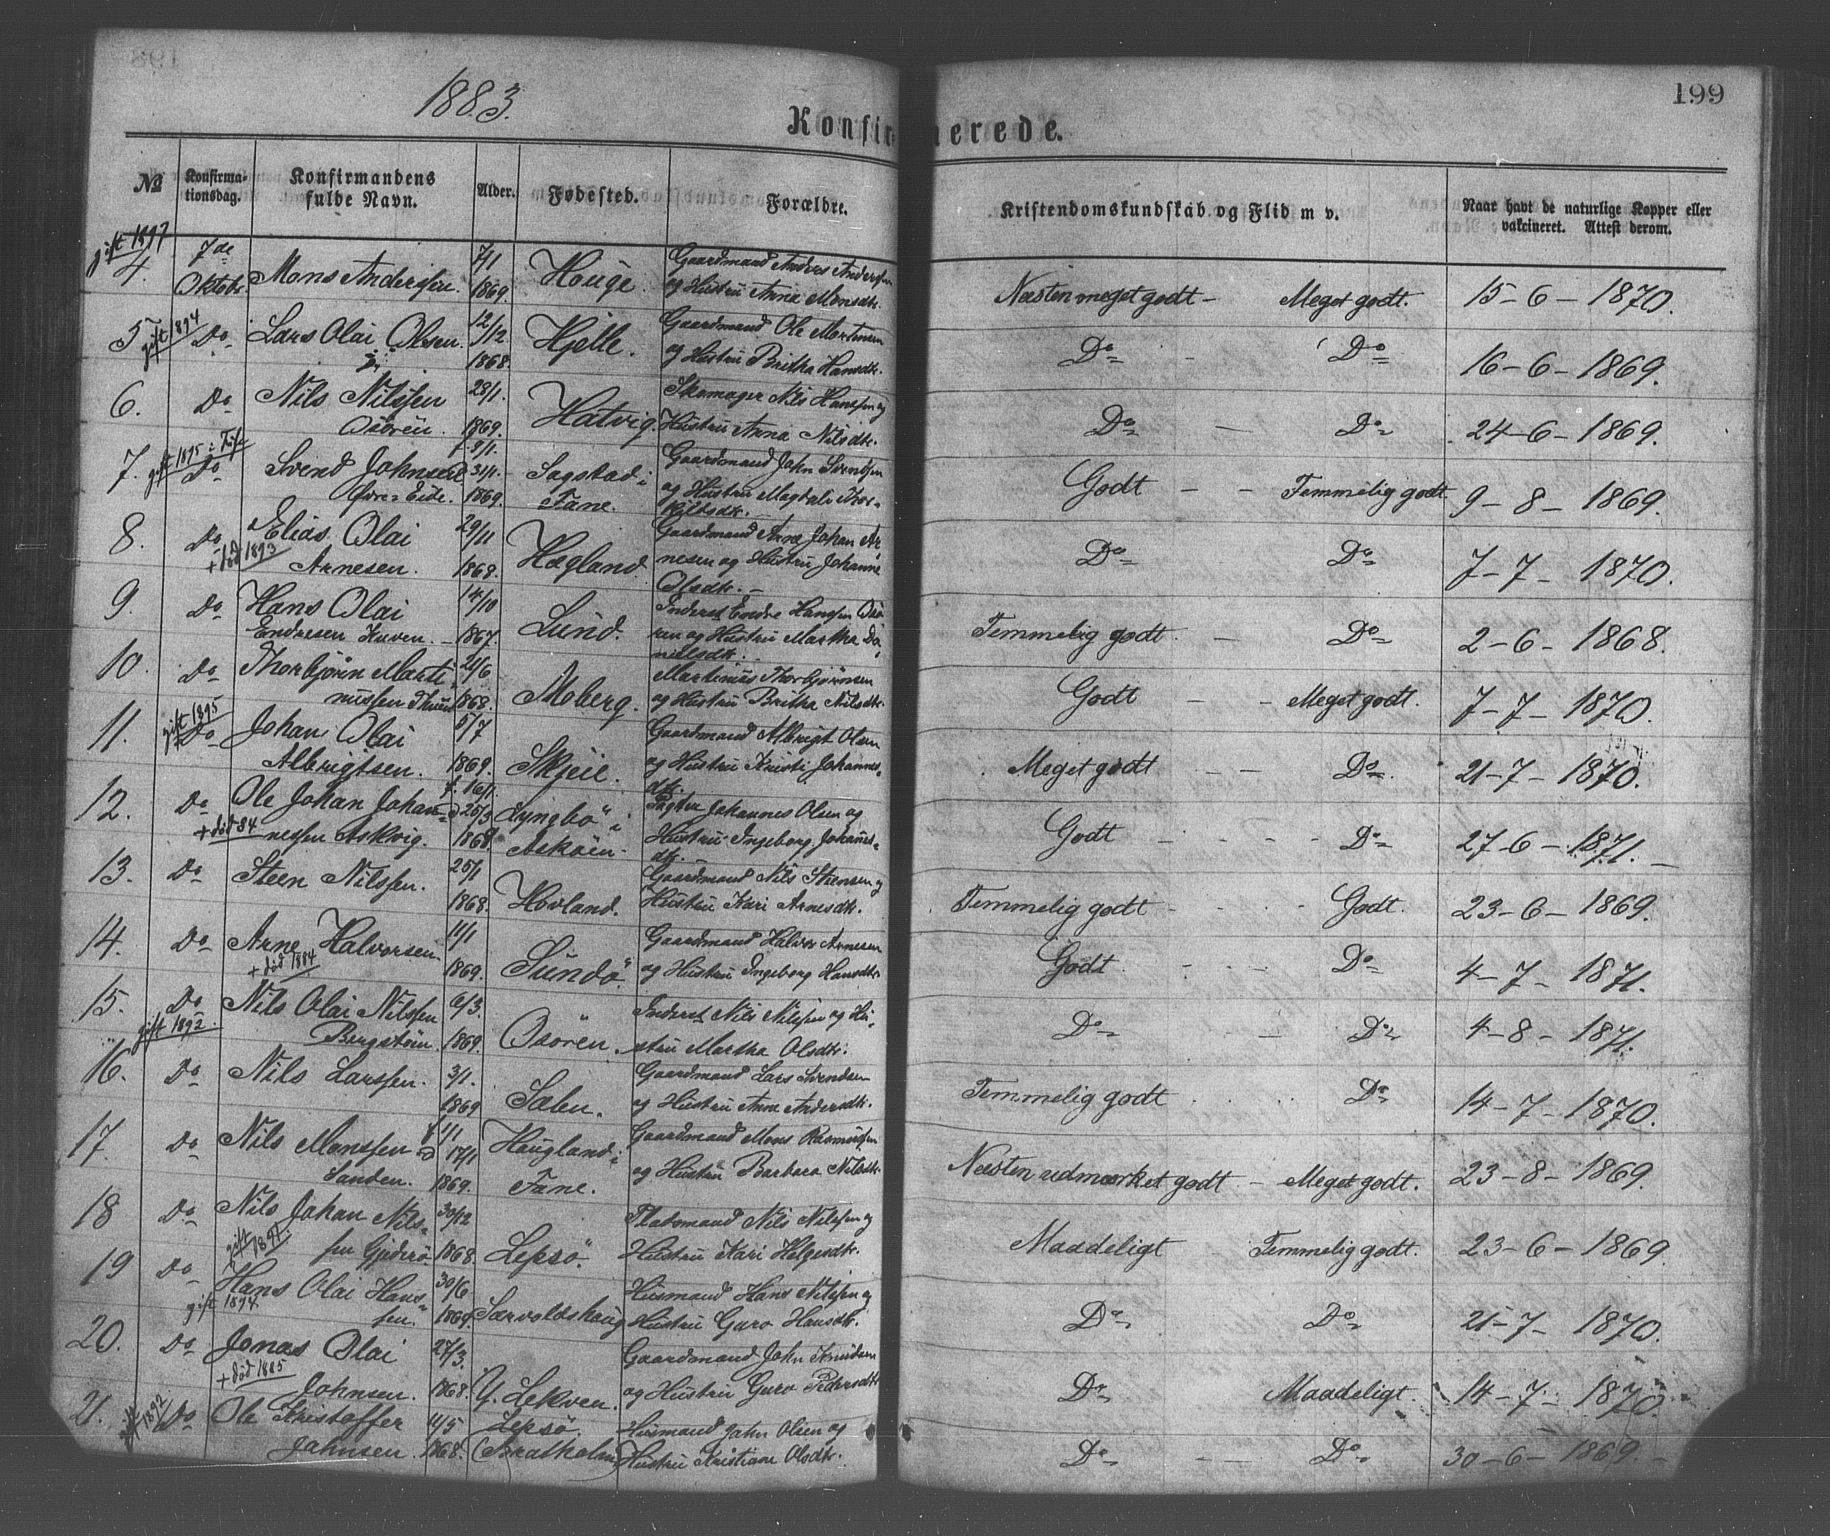 1883.
199
Konfirmerede.
№ Konfirma-tionsdag. Konfirmandens fulde Navn. Alder. Fødested. Forældre. Kristendomskundskab og Flid m v. Naar havt de naturlige Kopper eller vakcineret. Attest derom.
gift 1897
4. 7de Oktobr. Mons Anderssen. 7/1 1869. Houge. Gaardmand Anders Anderssen og Hustru Anna Monsdtr. Næsten meget godt - Meget godt. 15-6-1870.
5 gift 1894 Do Lars Olai Olsen. 12/12 1868. Hjelle. Gaardmand Ole Mortensen og Hustru Britha Hansdtr. Do - Do 16-6-1869.
6. Do Nils Nilssen Osören. 28/1. 1869. Hatvig. Skomager Nils Hanssen og Hustru Anna Nilsdtr. Do - Do 24-6-1869.
7. gift 1895 i Do Svend Johnsen Øvre-Eide. 31/1. 1869. Sagstad i Fane. Gaardmand John Svendsen og Hustru Magdali Thorkildsdtr. Godt - - Temmelig godt. 9-8-1869.
8. Do + død 1893 Elias Olai Arnesen. 29/11 1868. Hægland. Gaardmand Arne Johan Arnesen og Hustru Johanne Olsdtr. Do Do 7-7-1870.
9. Do Hans Olai Endresen 14/10 1867. Lund. Inderst Endre Hanssen Osören og Hustru Martha Danielsdtr. Temmelig godt. - Do 2-6-1868.
10. Do Thorbjörn Martinussen 29/6 1868. Moberg. Martinus Thorbjørnsen og Hustru Britha Nilsdtr. Godt - - Meget godt. 7-7-1870.
11. gift 1895 Do Johan Olai Albrigtsen. 5/7 1869. Skjeie. Gaardmand Albrigt Olsen og Hustru Kristi Johannesdtr. Meget godt - - Do 21-7-1870.
12. Do + död 84 Ole Johan Johannessen Askvig. f. 16/1. d 25/3 1868. Lyngbö i Asköen. Johannes Olsen og Hustru Ingeborg Johannesdtr. Godt - - - - Do 27-6-1871.
13. Do Steen Nilssen. 25/1 1868. Hovland. Gaardmand Nils Stensen og Hustru Kari Arnesdtr. Temmelig godt - - - Godt. 23-6-1869.
14. Do Arne Halvorsen. + död 1884 11/1 1869. Sundö. Gaardmand Halvor Arnesen og Hustru Ingeborg Hansdtr. Godt. - - - Do 4-7-1871.
15. Do gift 1892. Nils Olai Nilssen Bergstöen. 6/3. 1869. Osören. Inderst Nils Nilssen og Hustru Martha Olsdtr. Do - Do 4-8-1871.
16. Do Nils Larssen. 3/1. 1869 Salen. Gaardmand Lars Svendsen og Hustru Anne Andersdtr. Temmelig godt Do 14-7-1870.
17. Do Nils Monssen Sanden. f 1/1 d 17/1 1869. Haugland i Fane. Gaardmand Mons Rasmussen og Hustru Barbara Nilsdtr. Næsten udmærket godt - Meget godt. 23-8-1869.
18 Do Nils Johan Nilssen Gjøderö 30/12 1868. Lepsö. Pladsmand Nils Nilssen og Hustru Kari Helgesdtr. Maadeligt Temmelig godt. 23-6-1869
gift 1891.
19 Do Hans Olai Hanssen. gift 1894 30/6 1869. Særvoldshaug Husmand Hans Nilssen og Hustru Guro Hansdtr. Do Do 21-7-1870.
20. Do Jonas Olai Johnsen. + död 1885 27/3. 1868. Y. Lekven. Gaardmand John Knudsen og Hustru Guro Pedersdtr. Do Maadeligt. 14-7-1870.
21. gift 1892 Do Ole Kristoffer Johnsen. 11/5 1868. Lepsö. (Bratholm) Husmand John Olsen og Hustru Kristiane Olsdtr. Do - - Do 30-6-1869.